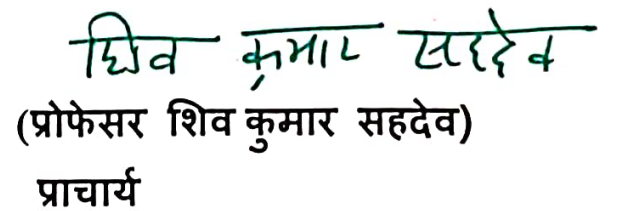 शिव कुमार सहदेव
(प्रोफेसर शिव कुमार सहदेव)
प्राचार्य